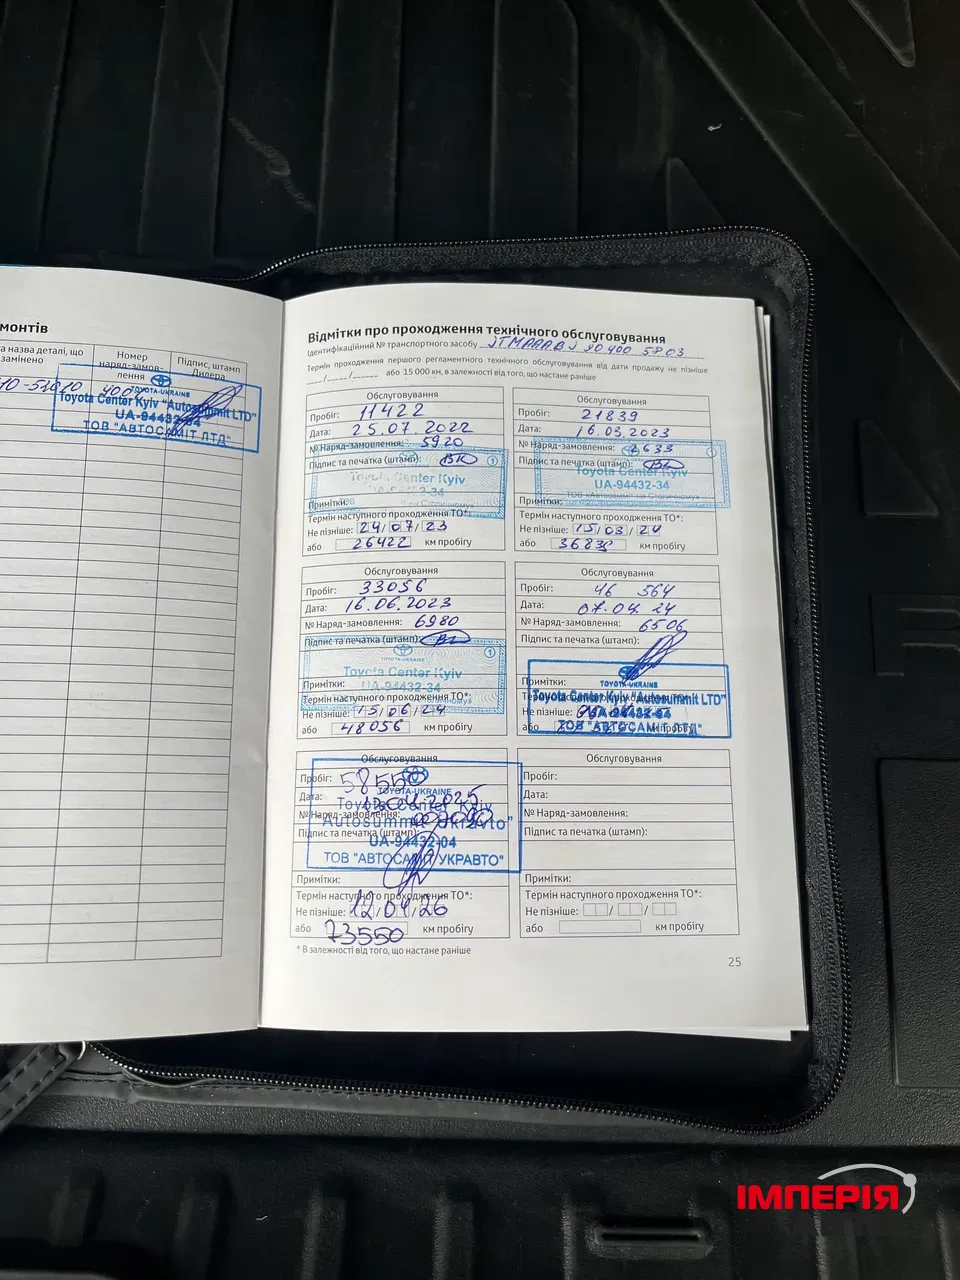 монтів
а назва деталі, що
замінено
Номер
наряд-замов-
лення
Підпис, штамп
Дилера
10-51010
400
TOYOTA-UKRAINE
Toyota Center Kyiv "Autosummit LTD"
UA-94432-04
ТОВ "АВТОСАМІТ ЛТД"
Відмітки про проходження технічного обслуговування
Ідентифікаційний № транспортного засобу
Термін проходження першого регламентного технічного обслуговування від дати продажу не пізніше
___/____/______ або 15 000 км, в залежності від того, що настане раніше
Обслуговування
Пробіг: 11422
Дата: 25.07.2022
№ Наряд-замовлення: 5920
Підпис та печатка (штамп):
Toyota Center Kyiv
Примітки:
Термін наступного проходження ТО*:
Не пізніше: 24/07/23
або 26422 км пробігу
Обслуговування
Пробіг: 21839
Дата: 16.03.2023
№ Наряд-замовлення: 2633
Підпис та печатка (штамп):
Toyota Center Kyiv
UA-94432-34
ТОВ «Автосаміт на Столичному»
Примітки:
Термін наступного проходження ТО*:
Не пізніше: 15/03/24
або 36839 км пробігу
Обслуговування
Пробіг: 33056
Дата: 16.06.2023
№ Наряд-замовлення: 6980
Підпис та печатка (штамп):
TOYOTA-UKRAINE
Toyota Center Kyiv
UA-94432-34
Примітки:
Термін наступного проходження ТО*:
Не пізніше: 15/06/24
або 48056 км пробігу
Обслуговування
Пробіг: 46 564
Дата: 07.04.24
№ Наряд-замовлення: 6506
Підпис та печатка (штамп):
Примітки:
TOYOTA-UKRAINE
Toyota Center Kyiv "Autosummit LTD"
Не пізніше:
UA-94432-04
ТОВ "АВТОСАМІТ ЛТД"
або км пробігу
Обслуговування
Пробіг: 58550
TOYOTA-UKRAINE
Дата:
Toyota Center Kyiv
№ Наряд-замовлення:
Autosummit Ukravto"
Підпис та печатка (штамп):
UA-94432-04
ТОВ "АВТОСАМІТ УКРАВТО"
Примітки:
Термін наступного проходження ТО*:
Не пізніше: 12/04/26
або 73550 км пробігу
Обслуговування
Пробіг:
Дата:
№ Наряд-замовлення:
Підпис та печатка (штамп):
Примітки:
Термін наступного проходження ТО*:
Не пізніше: / /
або км пробігу
* В залежності від того, що настане раніше
25
ІМПЕРІЯ